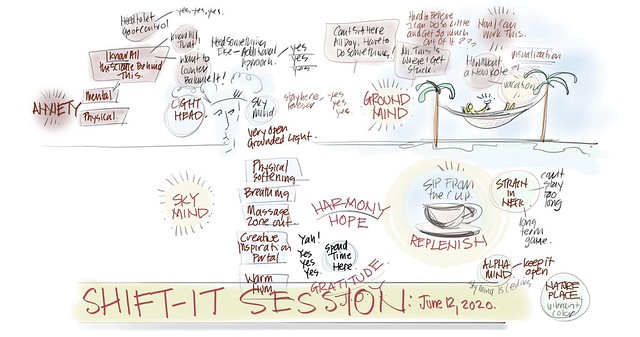 Need to let
go of control
yes, yes, yes.
Know All
That
I know All
the science Behind
This.
Want to
Counter
Balance It!
Need something
Else - Additional
Approach.
yes
yes
yes
Can't sit Here
All Day. Have to
Do something!
Ah. This is
where I get
stuck
Hard to Believe
I can Do so little
and Get so much
out of it???
Now I can
work This.
How About
a new note
visualization
vacation
ANXIETY
Mental
Physical
LIGHT
HEAD.
SKY
Mind
stay here
forever
yes
yes
yes
GROUND
MIND
very open
Grounded Light.
SKY
MIND.
Physical
Softening
Breathing
Massage
Zone out.
Creative
Inspiration
Portal
Warm
Hum.
Yah!
Yes
Yes
Yes.
Spend
Time
Here
HARMONY
HOPE
GRATITUDE
JOY
SIP FROM
the CUP.
REPLENISH
STRAIN
in
NECK
can't
stay
too
long
long
term
game.
ALPHA
MIND.
keep it
open
sky mind is
NATURE
PLACE
vibrant
color
SHIFT-IT SESSION: June 12, 2020.